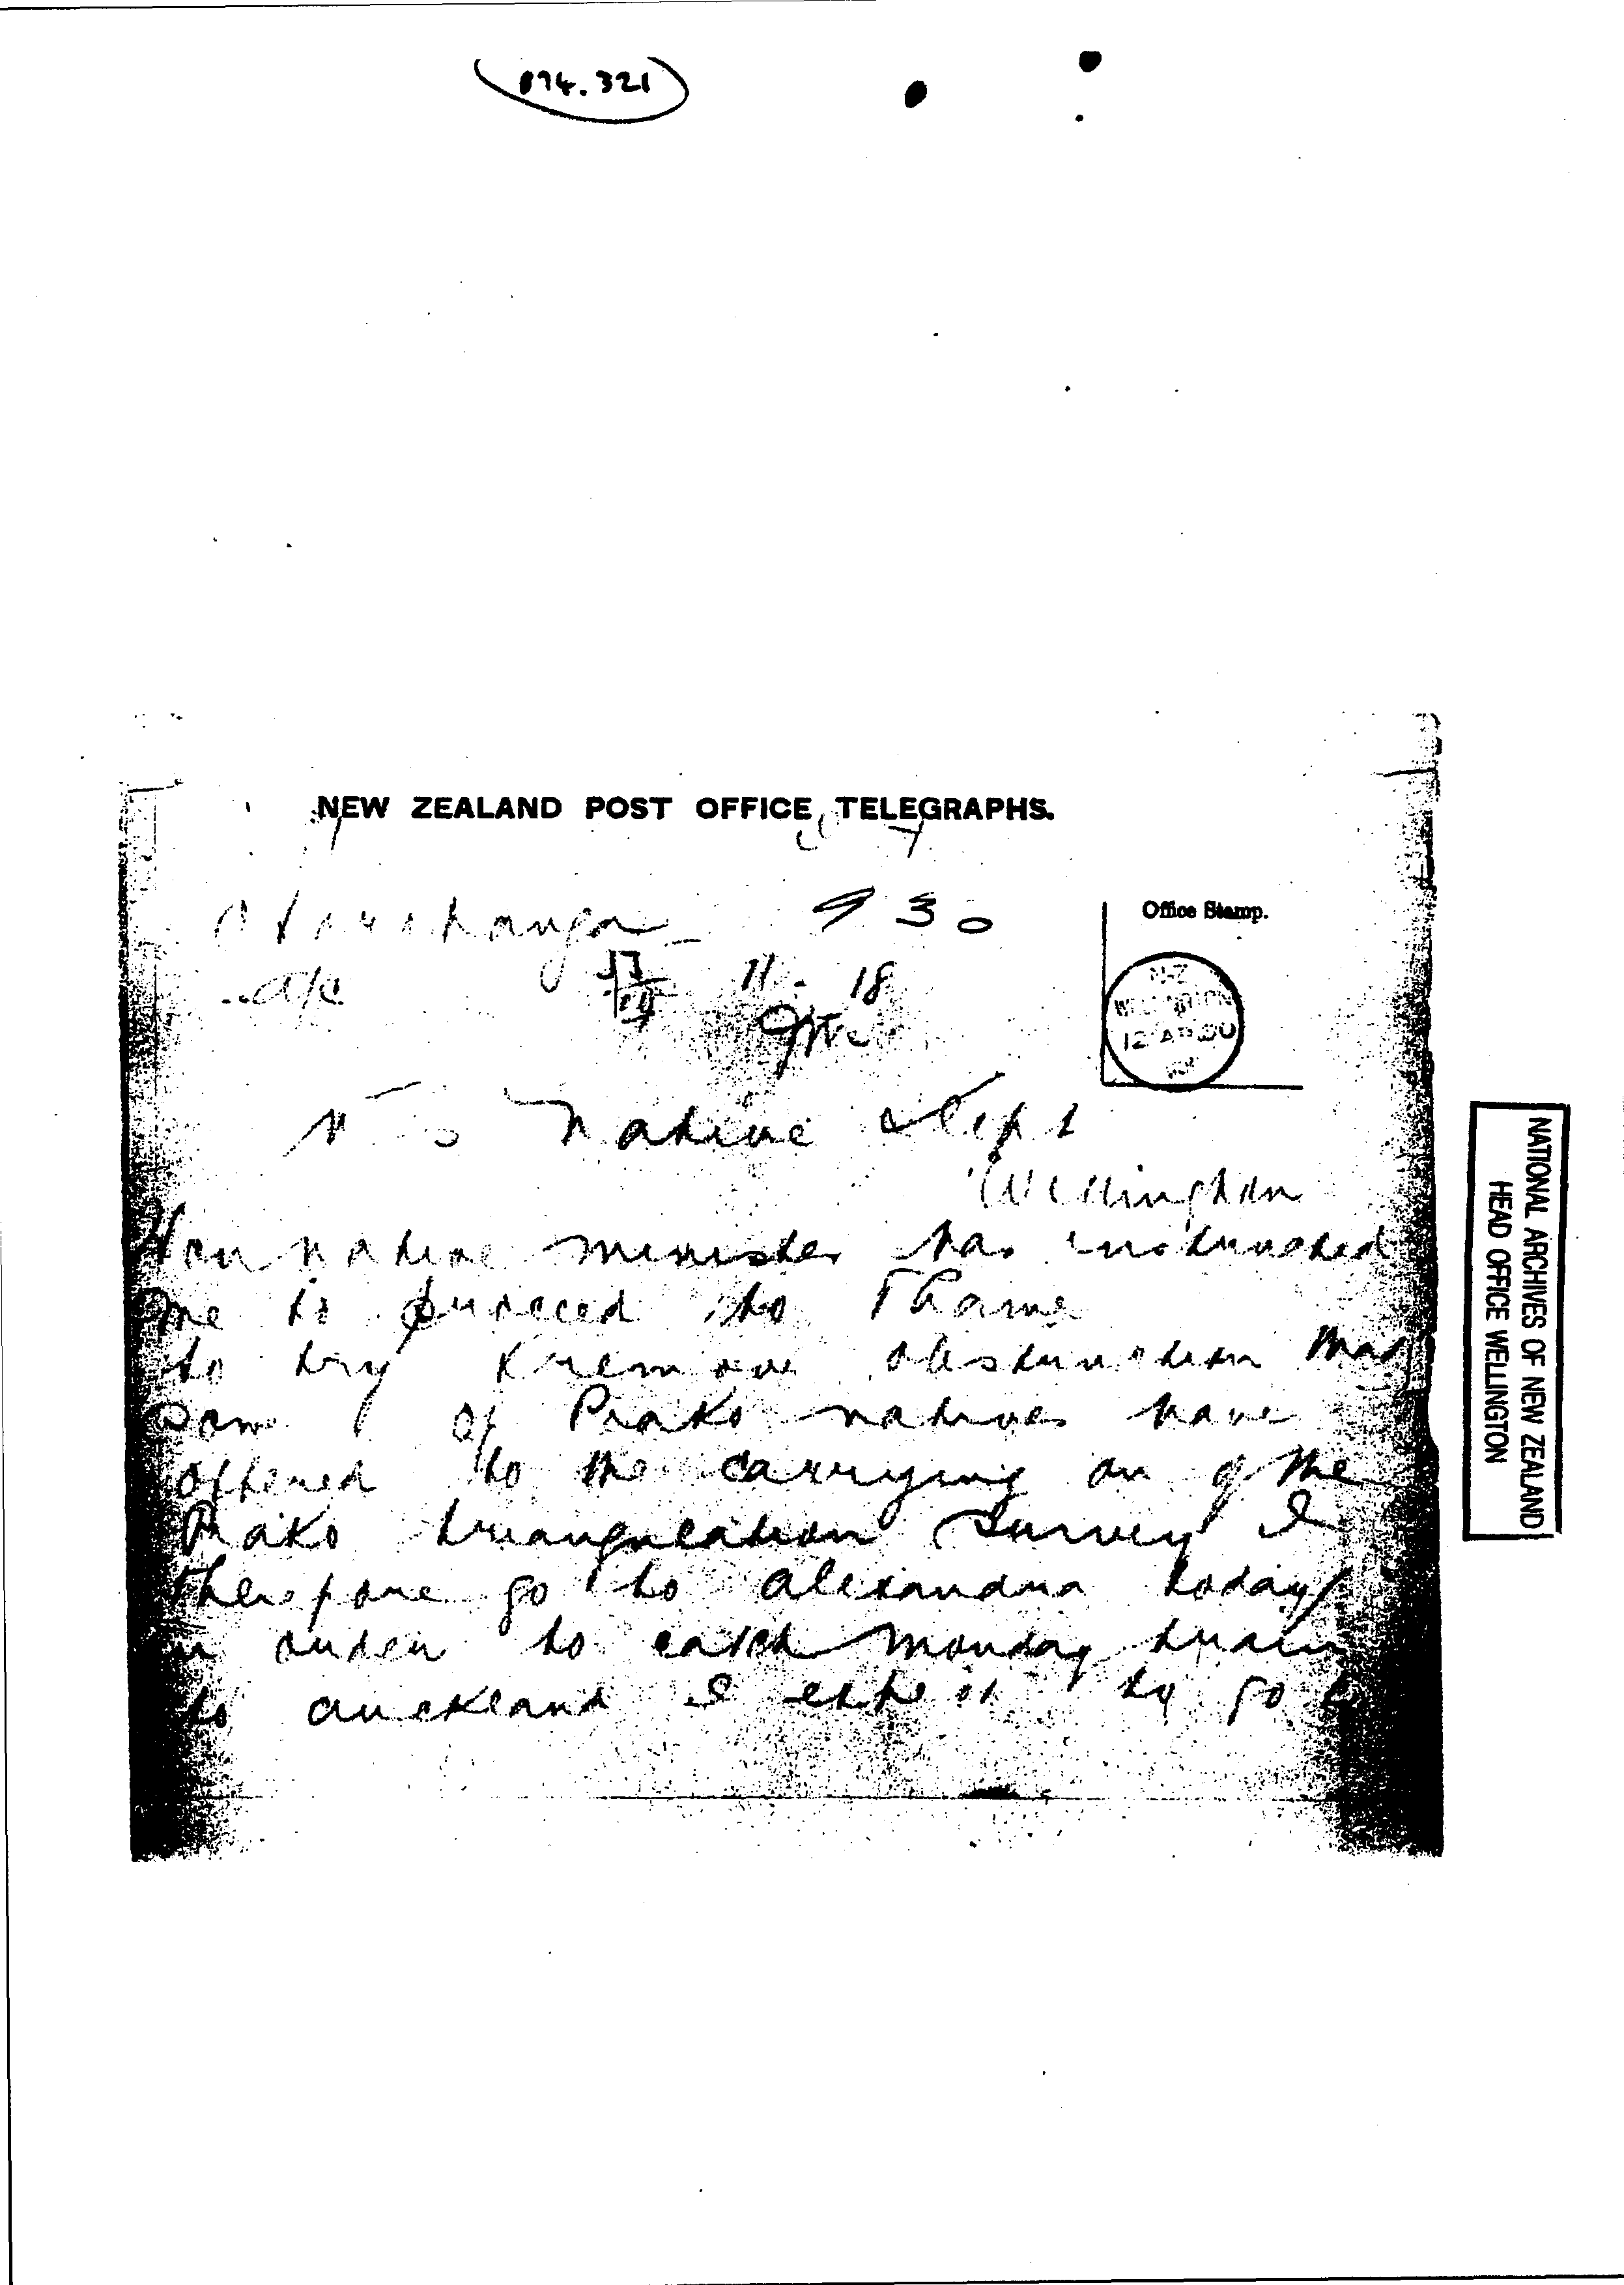 874.321
NEW ZEALAND POST OFFICE TELEGRAPHS.
Otorohanga 9 30
Office Stamp.
a/c 11. 18
N.Z
WELLINGTON
12 AP 90
Native Dept
Wellington
Hon Native minister has instructed
me to proceed to Thame
to try & remove obstruction that
some of Piako natives have
offered to the carrying on of the
Piako triangulation Survey I
therefore go to alexandra today
in order to catch monday train
to auckland I expect to go to
NATIONAL ARCHIVES OF NEW ZEALAND
HEAD OFFICE WELLINGTON